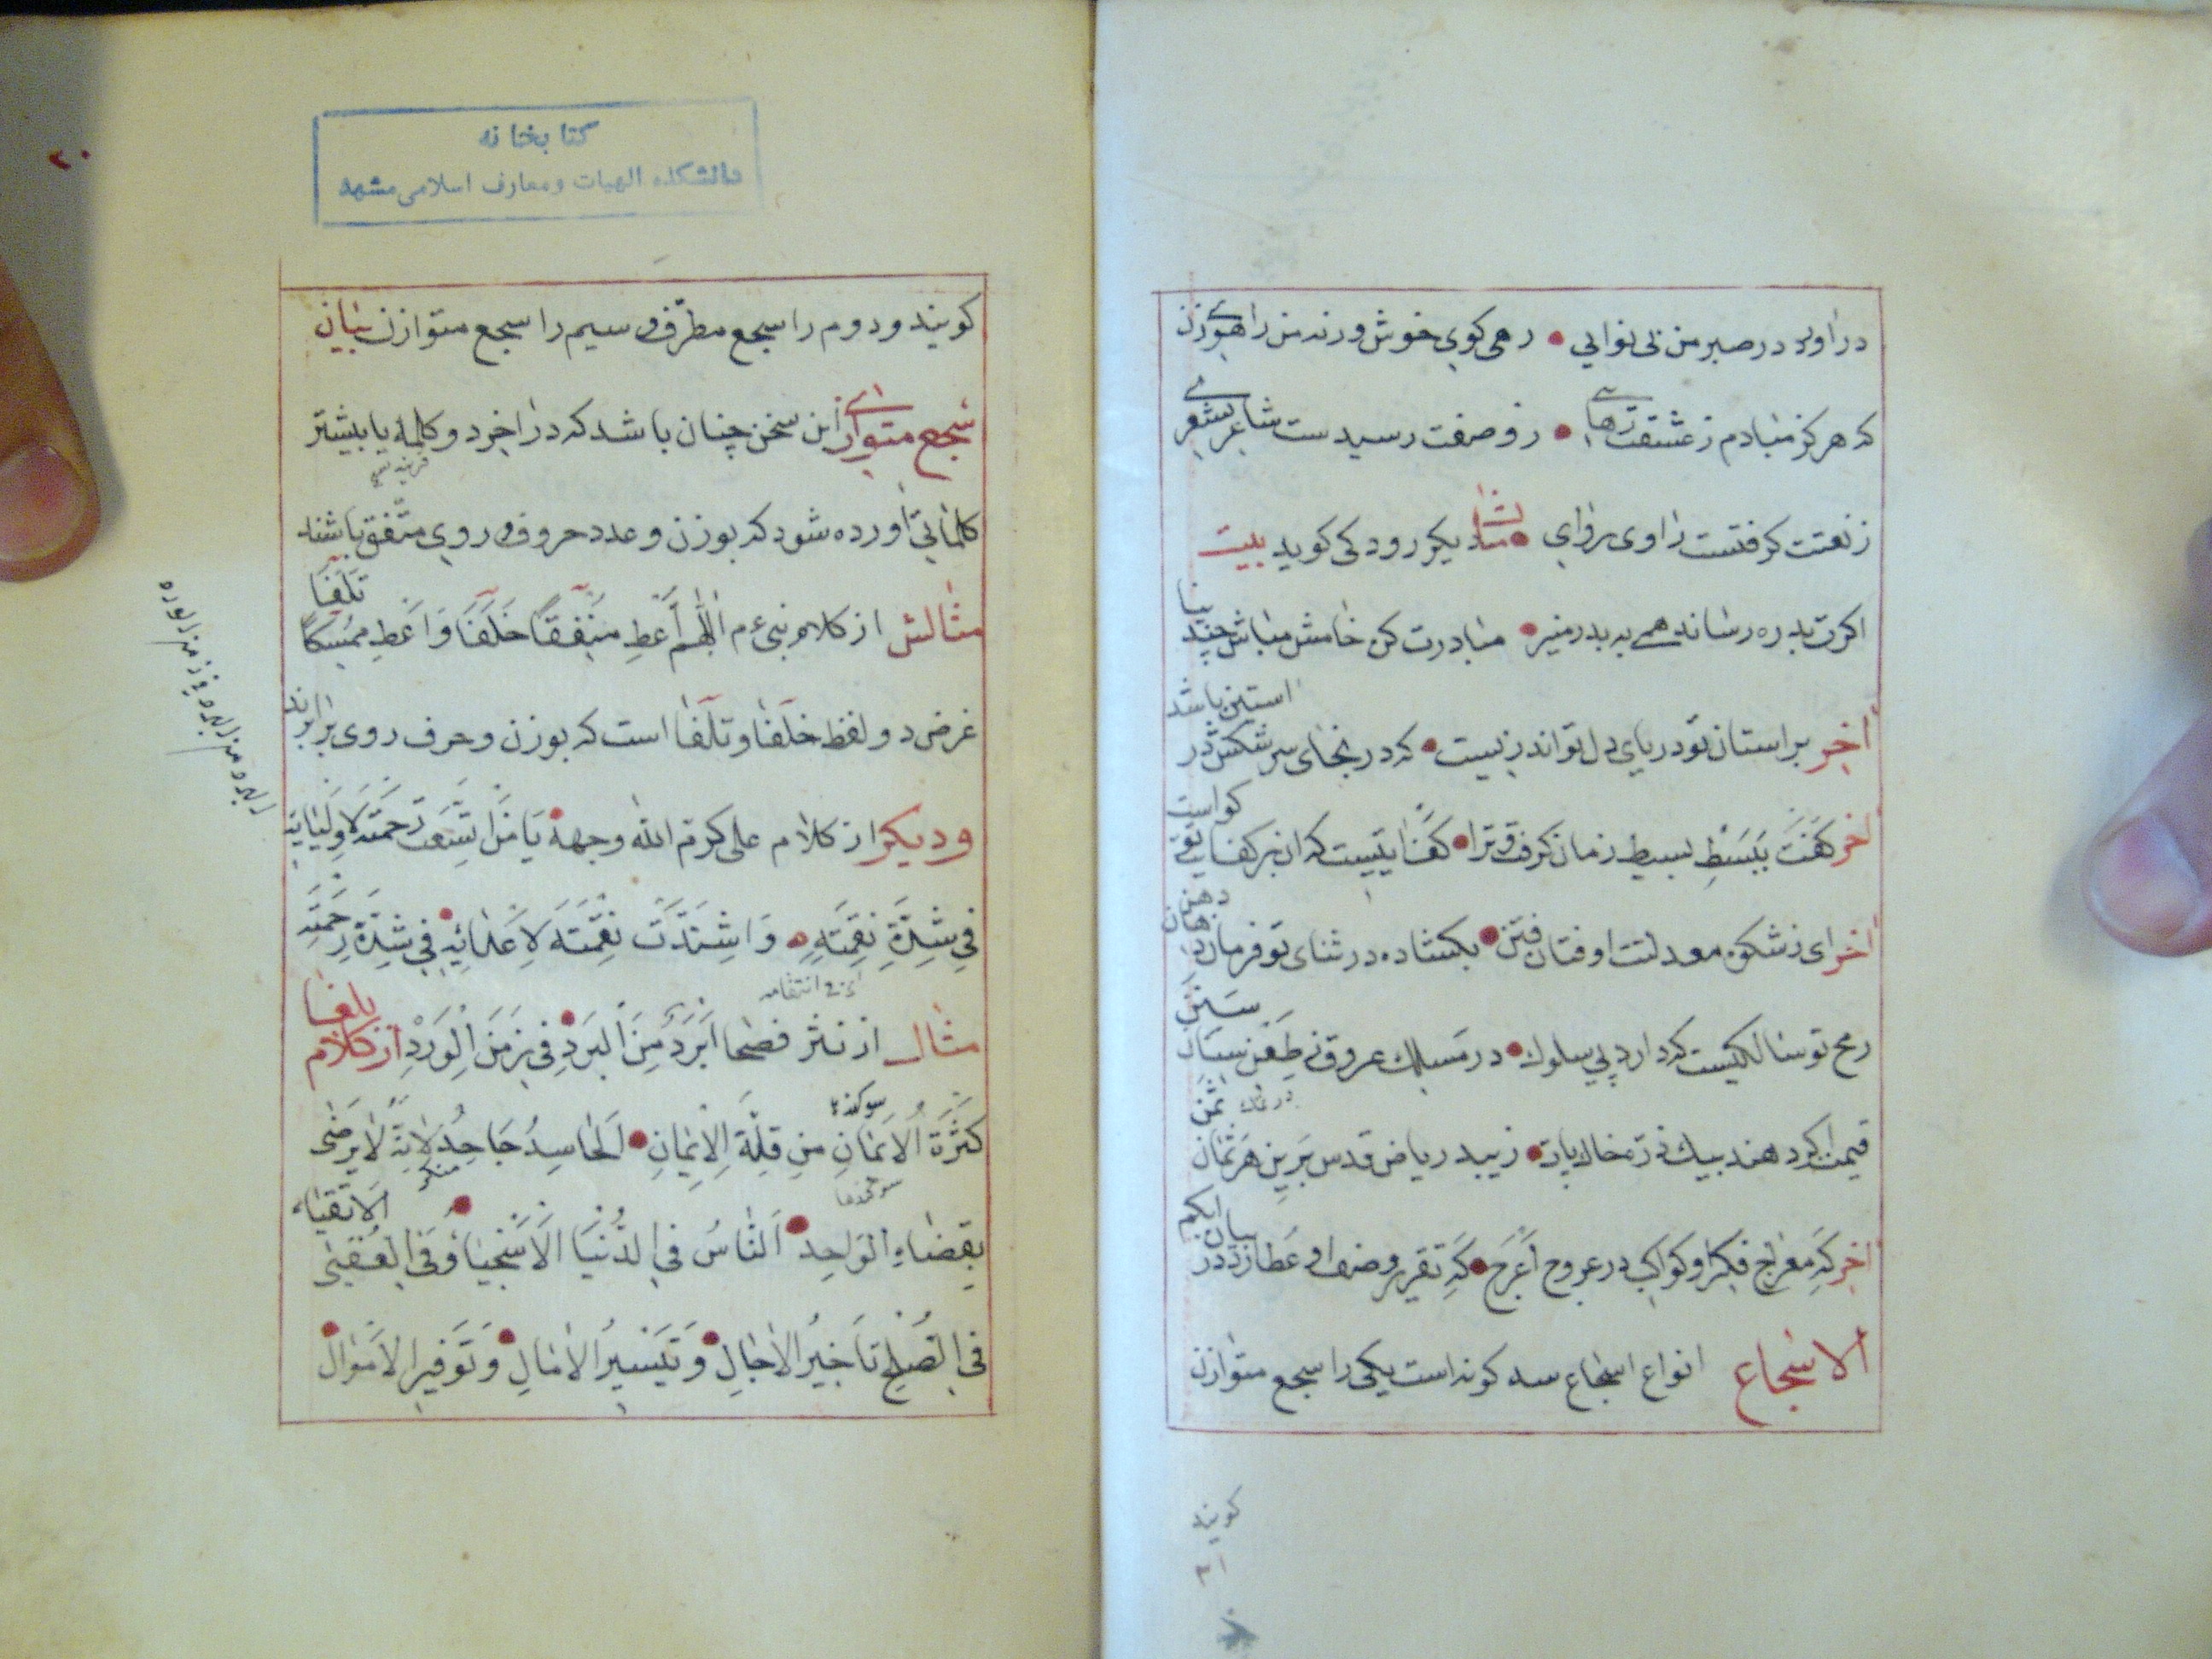 دراورد در صبر من بی نوایی • رهی کوی خوش ورنه من راهوی زن
که هرکز مبادم ز عشقت رهایی • ز وصفت رسیدست شاعر بشعری
ز نعتت کرفتست راوی روای • مثال دیکر رودکی کوید بیت
اکرت بدره رساند همی به بدر منیر • مبادرت کن خامش مباش چندینا
اخر بر استان تو دریای دل تواند زیست • که در بحای سرشکش در استین باشد
اخر کفت ببسط بسیط زمان کرفت ترا • کفایتیست که ان بر کف کواست
اخر ای ز شکوه معدلتت اوفتان فتن • بکشاده در ثنای تو فرمان دهان دهن
رمح تو سالکیست که دارد پی سلوک • در مسلک عروق ز طعن سنان سنن
قیمت اکر دهند بیک ذره خاک پات • زیبد ریاض قدس برین هر ثمان ثمن
اخر که معراج فکر او کواکب در عروج اعرج • که تقریر وصف او عطارد در بیان ابکم
الاسجاع انواع اسجاع سه کونه است یکی را سجع متوازن
کویند
کویند و دوم را سجع مطرف و سیم را سجع متوازن بیان
سجع متوازی این سخن چنان باشد که در اخر دو کلمه یا بیشتر
کلماتی اورده شود که بوزن و عدد حروف و روی متفق باشند
مثالش از کلام نبی ءم اللهم أعط منفقا خلفا واعط ممسکا تلفا
غرض دو لفظ خلفا و تلفا است که بوزن و حرف روی برابرند
و دیکر از کلام علی کرم الله وجهه یا من اتسعت رحمته لاولیایه
فی شدة نقمته • واشتدت نقمته لاعدائه فی شدة رحمته
ای فی انتقامه
مثال از نثر فصحا ابرد من البرد فی زمن الورد از کلام بلغا
کثرة الایمان من قلة الایمان • الحاسد جاحد لانه لا یرضی
بقضاء الواحد • الناس فی الدنیا الاسخیا و فی العقبی الاتقیاء
فی الصلح تاخیر الاجال • و تیسیر الامال • و توفیر الاموال
سوکند
منکر
سوکندها
کتابخانه
دانشکده الهیات و معارف اسلامی مشهد
۲۰